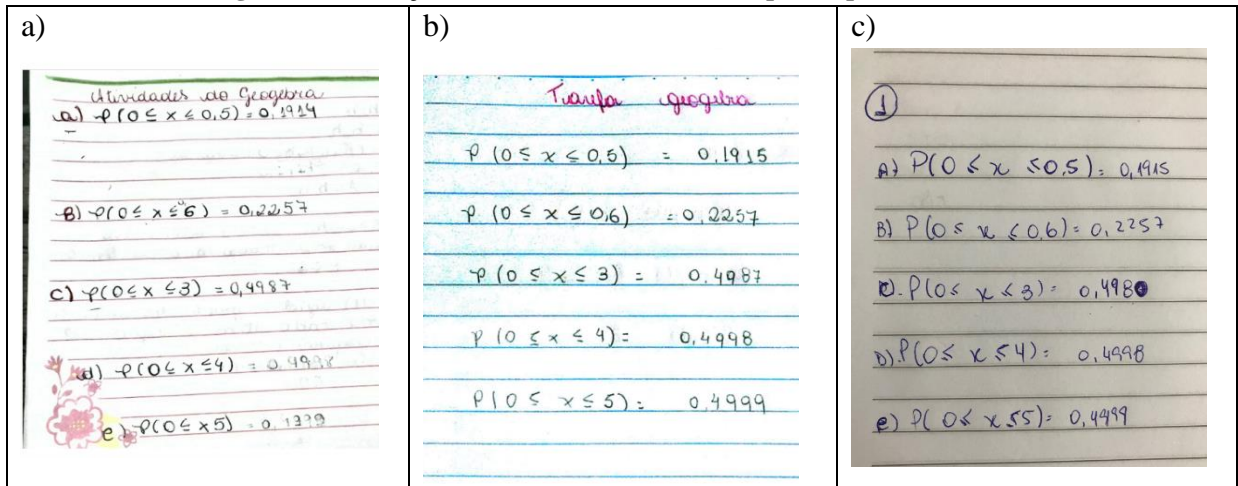 a)
Atividades do Geogebra
a) P(0 ≤ x ≤ 0,5) = 0,1914
B) P(0 ≤ x ≤ 6) = 0,2257
C) P(0 ≤ x ≤ 3) = 0,4987
d) P(0 ≤ x ≤ 4) = 0,4998
e) P(0 ≤ x 5) = 0,
b)
geogebra
P (0 ≤ x ≤ 0,5) = 0,1915
P (0 ≤ x ≤ 0,6) = 0,2257
P (0 ≤ x ≤ 3) = 0,4987
P (0 ≤ x ≤ 4) = 0,4998
P(0 ≤ x ≤ 5) = 0,4999
c)
1
A) P(0 ≤ x ≤ 0,5) = 0,1915
B) P(0 ≤ x ≤ 0,6) = 0,2257
C) P(0 ≤ x ≤ 3) = 0,498
D) P(0 ≤ x ≤ 4) = 0,4998
e) P(0 ≤ x ≤ 5) = 0,4999